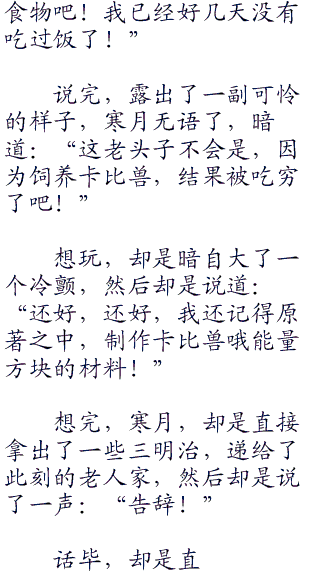 食物吧！我已经好几天没有
吃过饭了！”
说完，露出了一副可怜
的样子，寒月无语了，暗
道：“这老头子不会是，因
为饲养卡比兽，结果被吃穷
了吧！”
想玩，却是暗自大了一
个冷颤，然后却是说道：
“还好，还好，我还记得原
著之中，制作卡比兽哦能量
方块的材料！”
想完，寒月，却是直接
拿出了一些三明治，递给了
此刻的老人家，然后却是说
了一声：“告辞！”
话毕，却是直